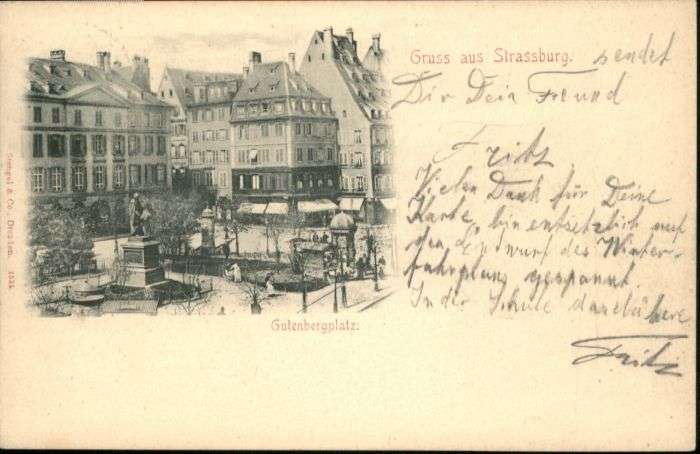 Gruss aus Strassburg. sendet
Dir Dein Freund
Fritz
Vielen Dank für Deine
Karte, bin entsetzlich auf
den Entwurf des Winter-
fahrplans gespannt.
In der Schule darüber
Fritz
Gutenbergplatz.
Stengel & Co., Dresden.